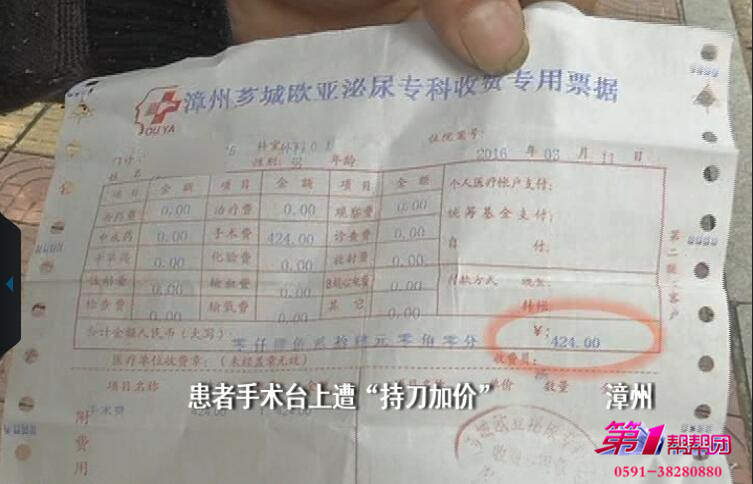 漳州芗城欧亚泌尿专科收费专用票据
OUYA
住院案号:
门诊: 科室
姓名 性别: 年龄 2016 年 03 月 11 日
项目 金额 项目 金额 项目 金额 个人医疗帐户支付:
西药费 0.00 治疗费 0.00 观察费 0.00 统筹基金支付:
中成药 0.00 手术费 424.00 诊查费 0.00 自 付:
中草药 0.00 化验费 0.00 放射费 0.00
注射费 0.00 输血费 0.00 B超心电费 0.00 付款方式 现金:
检查费 0.00 输氧费 0.00 其它 0.00 转帐:
合计金额人民币(大写) 零仟肆佰贰拾肆元零角零分 ¥: 424.00
医疗单位收费章: (未经盖章无效) 收费员:
项目名称 单价 数量 金额
手术费 424.00 1 424.00
附
费
用
第二联:客户
患者手术台上遭“持刀加价” 漳州
第1帮帮团
0591-38280880